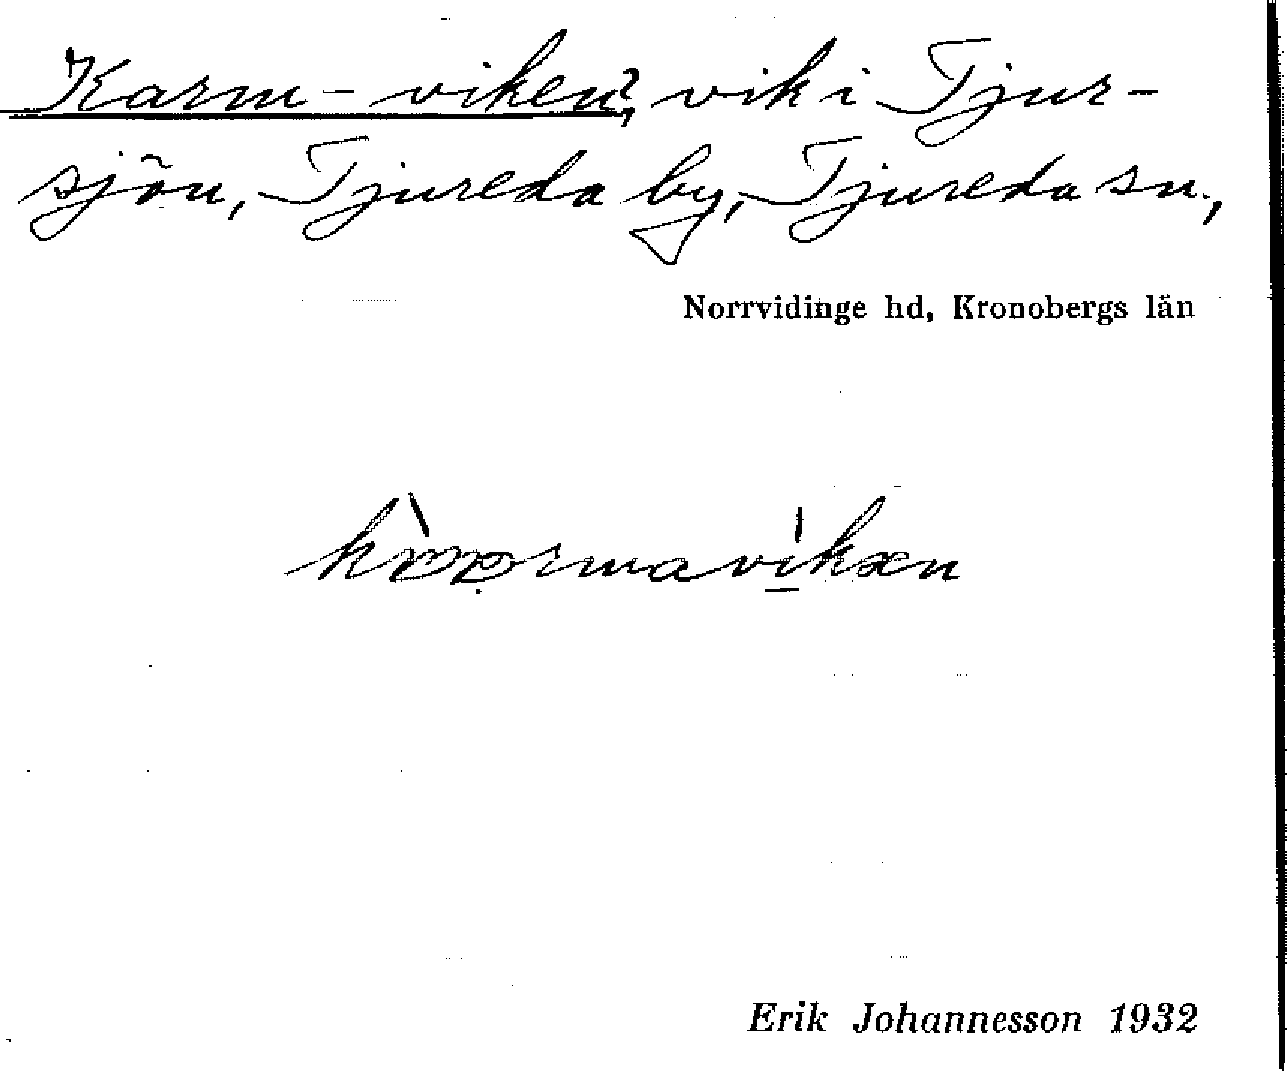 Karm-viken?, vik i Tjur-
sjön, Tjureda by, Tjureda sn.,
Norrvidinge hd, Kronobergs län
Erik Johannesson 1932